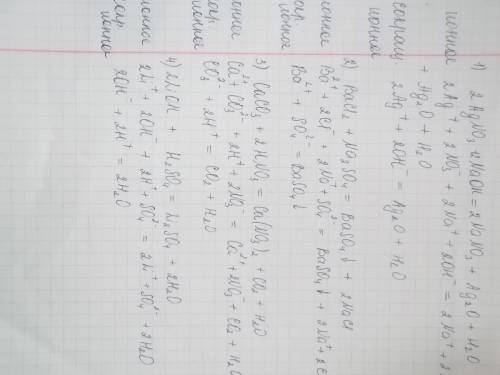 1) 2AgNO₃ + 2NaOH = 2NaNO₃ + Ag₂O + H₂O
ионное 2Ag⁺ + 2NO₃⁻ + 2Na⁺ + 2OH⁻ = 2Na⁺ + 2
+ Ag₂O + H₂O
сокращ. 2Ag⁺ + 2OH⁻ = Ag₂O + H₂O
ионное
2) BaCl₂ + Na₂SO₄ = BaSO₄↓ + 2NaCl
ионное Ba²⁺ + 2Cl⁻ + 2Na⁺ + SO₄²⁻ = BaSO₄↓ + 2Na⁺ + 2C
сокр. Ba²⁺ + SO₄²⁻ = BaSO₄↓
ионное
3) CaCO₃ + 2HNO₃ = Ca(NO₃)₂ + CO₂ + H₂O
ионное Ca²⁺ + CO₃²⁻ + 2H⁺ + 2NO₃⁻ = Ca²⁺ + 2NO₃⁻ + CO₂ + H₂O
сокр. CO₃²⁻ + 2H⁺ = CO₂ + H₂O
ионное
4) 2LiOH + H₂SO₄ = Li₂SO₄ + 2H₂O
ионное 2Li⁺ + 2OH⁻ + 2H⁺ + SO₄²⁻ = 2Li⁺ + SO₄²⁻ + 2H₂O
сокр. 2OH⁻ + 2H⁺ = 2H₂O
ионное